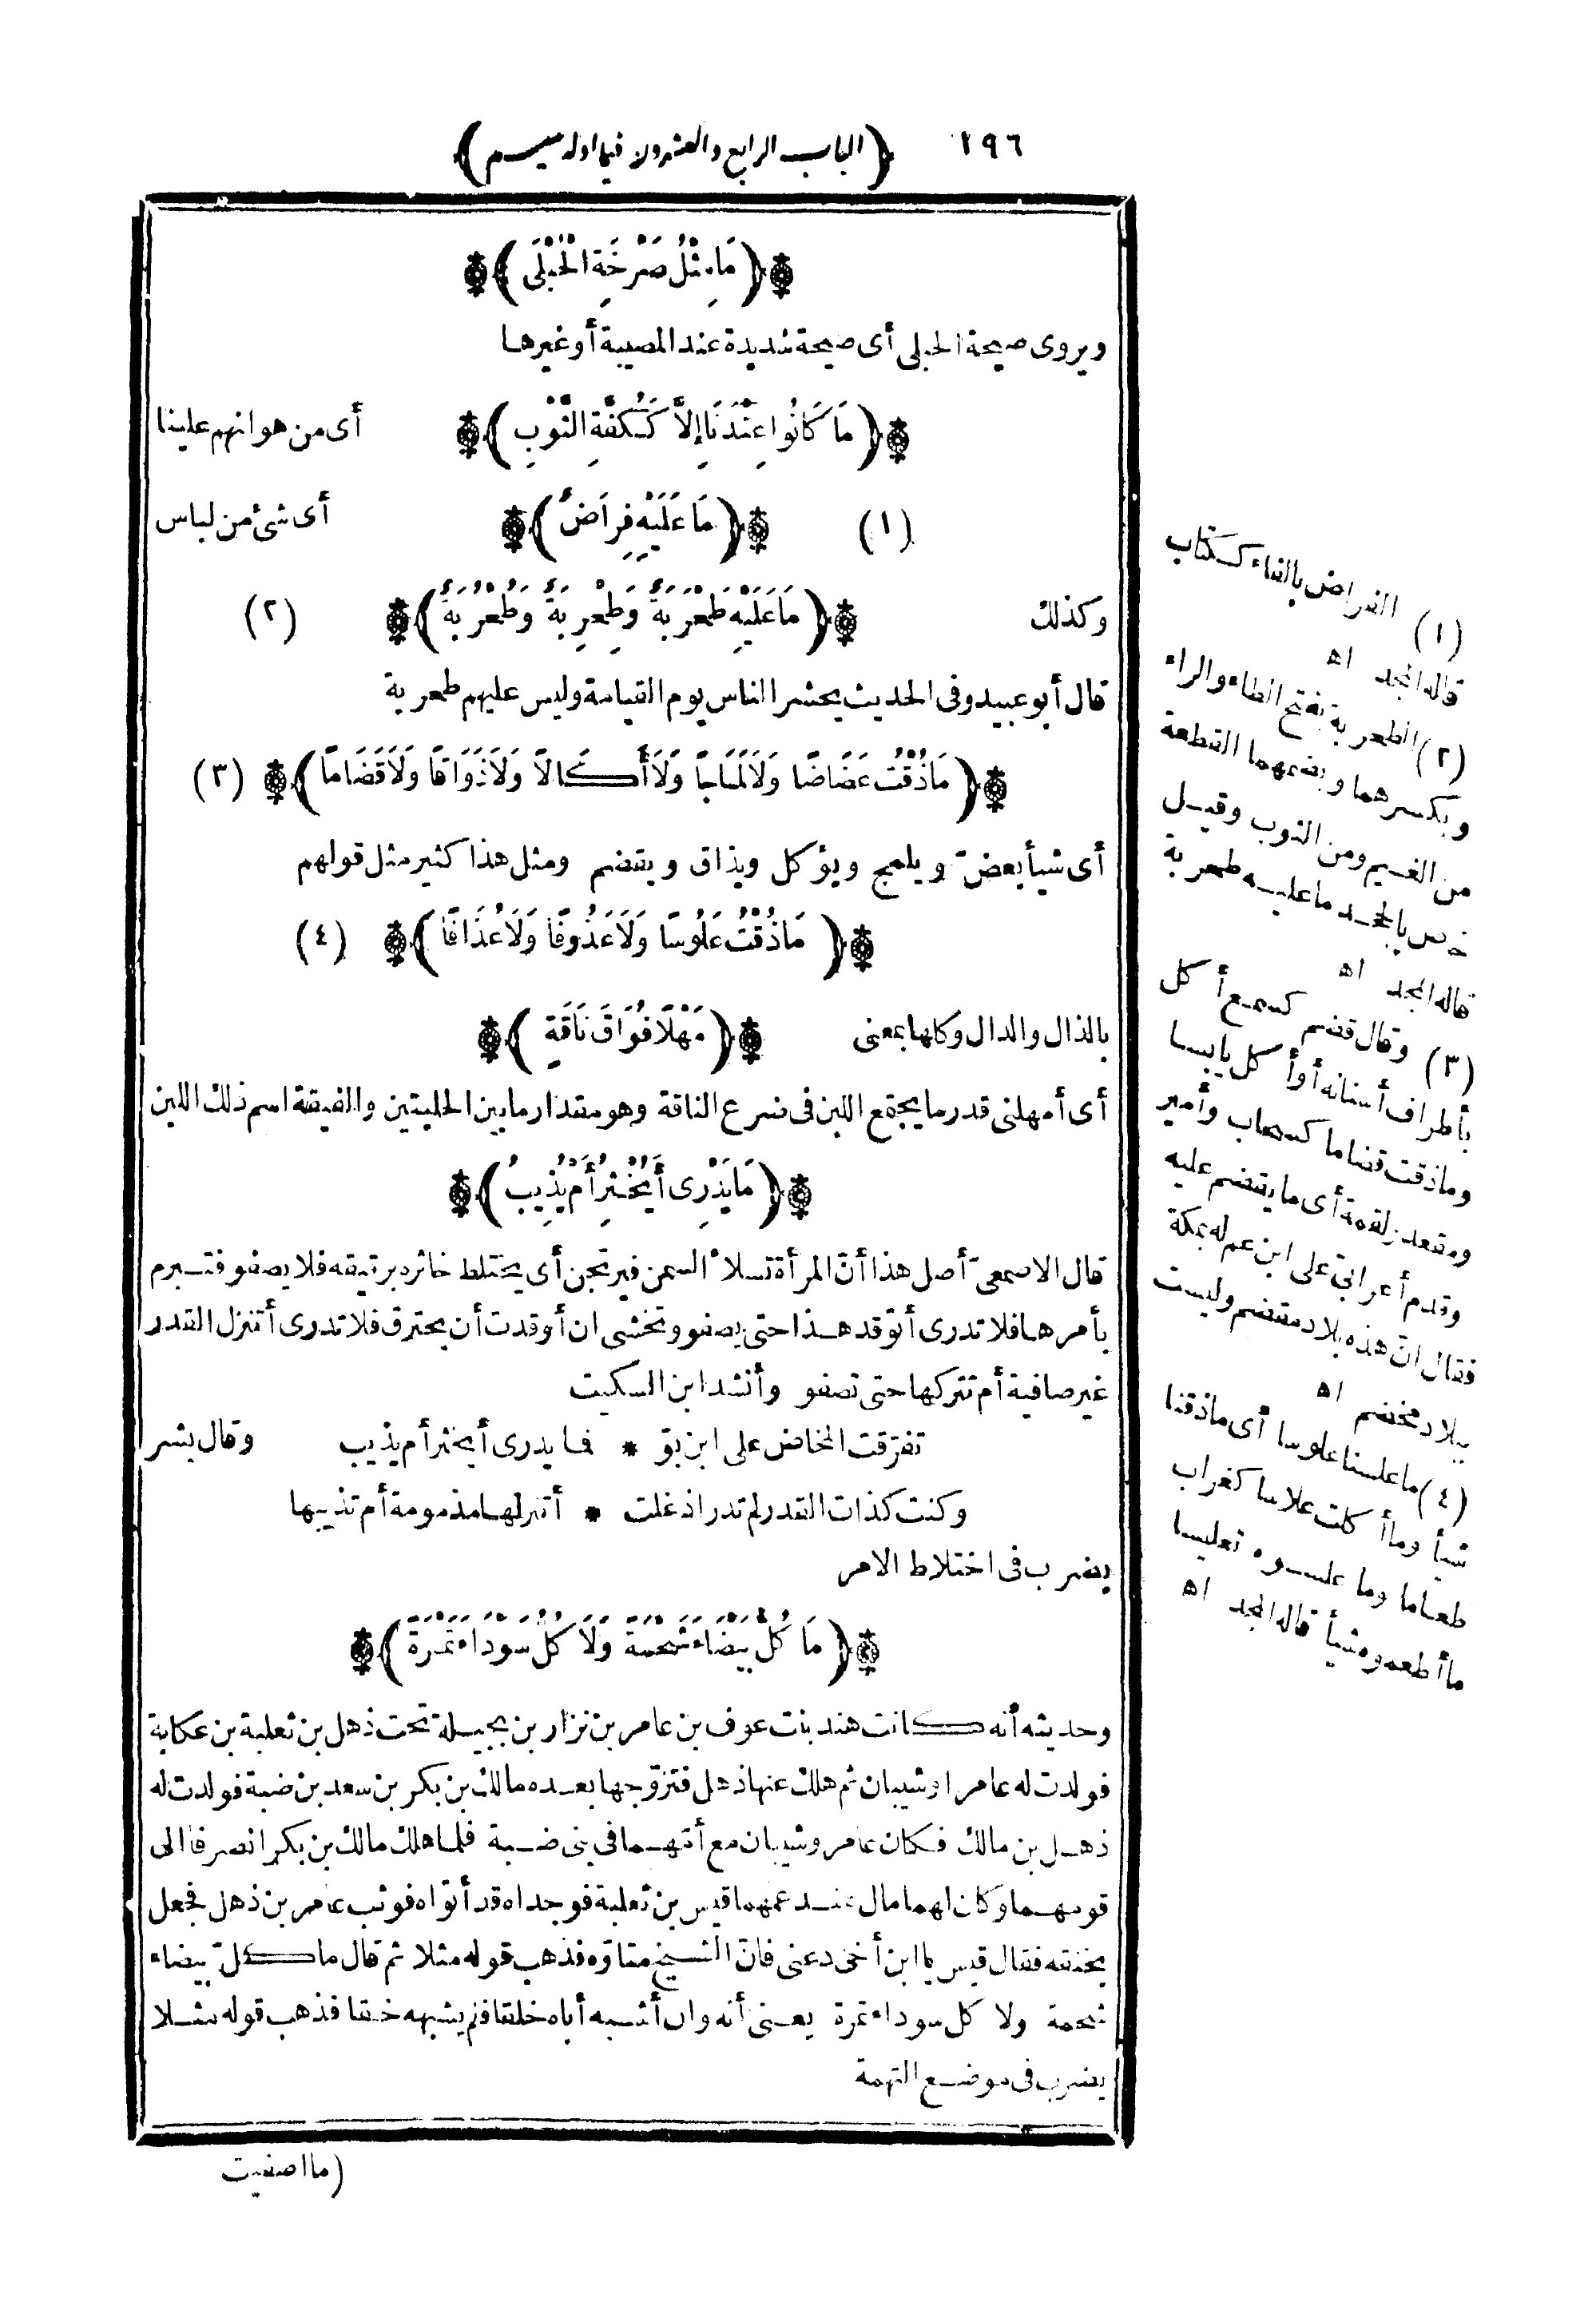 ١٩٦ ﴿الباب الرابع والعشرون فيما اوله ميم﴾
﴿مَا مِثْلُ صَرْخَةِ الْحُبْلَى﴾
ويروى صيحة الحبلى أى صيحة شديدة عند المصيبة أو غيرها
﴿مَا كَانُوا عِنْدَنَا إِلَّا كَكُفَّةِ الثَّوْبِ﴾ أى من هوانهم علينا
(١) ﴿مَا عَلَيْهِ فِرَاضٌ﴾ أى شئ من لباس
وكذلك ﴿مَا عَلَيْهِ طَحْرَبَةٌ وَطِحْرِبَةٌ وَطُحْرُبَةٌ﴾ (٢)
قال أبو عبيد وفى الحديث يحشر الناس يوم القيامة وليس عليهم طحربة
﴿مَا ذُقْتُ عَضَاضًا وَلَا لَمَاجًا وَلَا أَكَالًا وَلَا ذَوَاقًا وَلَا قَضَامًا﴾ (٣)
أى شيأ يعضّ ويلمج ويؤكل ويذاق ويقضم ومثل هذا كثير مثل قولهم
﴿مَا ذُقْتُ عَلُوسًا وَلَا عَذُوفًا وَلَا عُذَافًا﴾ (٤)
بالذال والدال وكلها بمعنى ﴿مَهْلًا فُوَاقَ نَاقَةٍ﴾
أى أمهلنى قدر ما يجتمع اللبن فى ضرع الناقة وهو مقدار ما بين الحلبتين والفيقة اسم ذلك اللبن
﴿مَا يَدْرِى أَيُخْثِرُ أَمْ يُذِيبُ﴾
قال الاصمعىّ أصل هذا أنّ المرأة تسلأ السمن فيرتجن أى يختلط خاثره برقيقه فلا يصفو فتبرم
بأمرها فلا تدرى أتوقد هذا حتى يصفو وتخشى ان أوقدت أن يحترق فلا تدرى أتنزل القدر
غير صافية أم تتركها حتى تصفو وأنشد ابن السكيت
تفرّقت المخاض على ابن بوّ * فما يدرى أيخثر أم يذيب وقال بشر
وكنت كذات القدر لم تدر اذ غلت * أتنزلها مذمومة أم تذيبها
يضرب فى اختلاط الامر
﴿مَا كُلُّ بَيْضَاءَ شَحْمَةً وَلَا كُلُّ سَوْدَاءَ تَمْرَةً﴾
وحديثه أنه كانت هند بنت عوف بن عامر بن نزار بن بجيلة تحت ذهل بن ثعلبة بن عكابة
فولدت له عامرا وشيبان ثم هلك عنها ذهل فتزوّجها بعده مالك بن بكر بن سعد بن ضبة فولدت له
ذهل بن مالك فكان عامر وشيبان مع أمّهما فى بنى ضبة فلما هلك مالك بن بكر انصرفا الى
قومهما وكان لهما مال عند عمهما قيس بن ثعلبة فوجداه قد أتواه فوثب عامر بن ذهل فجعل
يخنقه فقال قيس يا ابن أخى دعنى فانّ الشيخ متاوّه فذهب قوله مثلا ثم قال ما كلّ بيضاء
شحمة ولا كل سوداء تمرة يعنى أنه وان أشبه أباه خلقا فلم يشبهه خلقا فذهب قوله مثلا
يضرب فى موضع التهمة
(ما اصفيت
(١) الفراض بالفاء ككتاب
قاله المجد اه
(٢) الطحربة بفتح الطاء والراء
وبكسرهما وبضمهما القطعة
من الغيم ومن الثوب وقيل
خاص بالجحد ما عليه طحربة
قاله المجد اه
(٣) وقال قضم كسمع أكل
بأطراف أسنانه أو أكل يابسا
وما ذقت قضاما كسحاب وأمير
ومقعد ولقمة أى ما يقضم عليه
وقدم أعرابىّ على ابن عم له بمكة
فقال انّ هذه بلاد مقضم وليست
ببلاد مخضم اه
(٤) ما علسنا علوسا أى ما ذقنا
شيأ وما أكلت علاسا كغراب
طعاما وما علسوه تعليسا
ما أطعموه شيأ قاله المجد اه